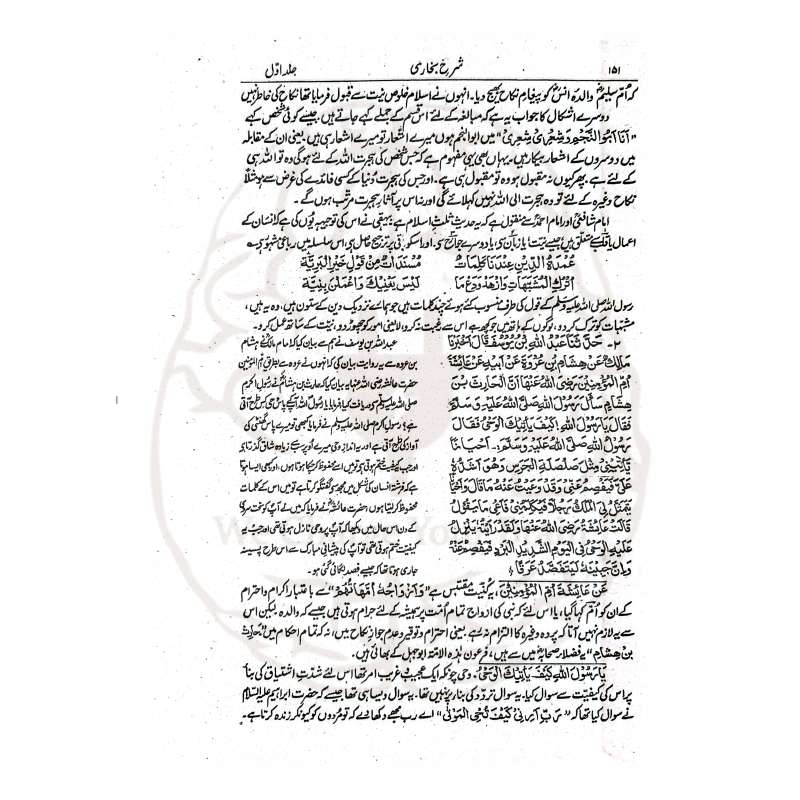 ۱۵۱ شرح بخاری جلد اوّل
کہ اُمّ سلیمؓ والدہ انسؓ کو پیغام نکاح بھیج دیا۔ انہوں نے اسلام خلوص نیت سے قبول فرمایا تھا نکاح کی خاطر نہیں
دوسرے اشکال کا جواب یہ ہے کہ مبالغہ کے لئے اس قسم کے جملے کہے جاتے ہیں۔ جیسے کوئی شخص کہے
"اَنَا اَبُو النَّجْمِ وَشِعْرِیْ شِعْرِیْ" میں ابوالنجم ہوں میرے اشعار تو میرے اشعار ہی ہیں۔ یعنی ان کے مقابلہ
میں دوسروں کے اشعار بیکار ہیں۔ یہاں بھی یہی مفہوم ہے کہ جس شخص کی ہجرت اللہ کے لئے ہوگی وہ تو اللہ ہی
کے لئے ہے۔ پھر کیوں نہ مقبول ہو وہ تو مقبول ہی ہے۔ اور جس کی ہجرت دُنیا کے کسی فائدے کی غرض سے ہو مثلاً
نکاح وغیرہ کے لئے تو وہ ہجرت الی اللہ نہیں کہلائے گی اور نہ اس پر آثار ہجرت مرتب ہوں گے۔
امام شافعیؒ اور امام احمدؒ سے منقول ہے کہ یہ حدیث ثلث اسلام ہے۔ بیہقی نے اس کی توجیہ یوں کی ہے کہ انسان کے
اعمال یا قلب سے متعلق ہیں جیسے نیت یا زبان سے یا دوسرے جوارح سے۔ اور اسکو باقی پر ترجیح حاصل ہے اس سلسلہ میں رباعی مشہور ہے
عُمْدَةُ الدِّیْنِ عِنْدَنَا کَلِمَاتٌ مُسْنَدَاتٌ مِنْ قَوْلِ خَیْرِ الْبَرِیَّةِ
اُتْرُكِ الْمُشْتَبِهَاتِ وَازْهَدْ وَدَعْ مَا لَیْسَ یَعْنِیْكَ وَاعْمَلَنْ بِنِیَّةٍ
رسول اللہ صلی اللہ علیہ وسلم کے قول کی طرف منسوب کئے ہوئے چند کلمات ہیں جو ہمارے نزدیک دین کے ستون ہیں، وہ یہ ہیں،
مشتبہات کو ترک کر دو، لوگوں کے ہاتھ میں جو کچھ ہے اس سے رغبت نہ کرو، لایعنی امور کو چھوڑ دو، نیّت کے ساتھ عمل کرو۔
۲۔ حَدَّثَنَا عَبْدُ اللهِ بْنُ یُوْسُفَ قَالَ اَخْبَرَنَا
مَالِكٌ عَنْ هِشَامِ بْنِ عُرْوَةَ عَنْ اَبِیْهِ عَنْ عَائِشَةَ
اُمِّ الْمُؤْمِنِیْنَ رَضِیَ اللهُ عَنْهَا اَنَّ الْحَارِثَ بْنَ
هِشَامٍ سَأَلَ رَسُوْلَ اللهِ صَلَّی اللهُ عَلَیْهِ وَسَلَّمَ
فَقَالَ یَا رَسُوْلَ اللهِ! کَیْفَ یَأْتِیْكَ الْوَحْیُ فَقَالَ
رَسُوْلُ اللهِ صَلَّی اللهُ عَلَیْهِ وَسَلَّمَ۔ اَحْیَانًا
یَأْتِیْنِیْ مِثْلَ صَلْصَلَةِ الْجَرَسِ وَهُوَ اَشَدُّهُ
عَلَیَّ فَیَفْصِمُ عَنِّیْ وَقَدْ وَعَیْتُ عَنْهُ مَا قَالَ وَاَحْیَانًا
یَتَمَثَّلُ لِیَ الْمَلَكُ رَجُلًا فَیُکَلِّمُنِیْ فَاَعِیْ مَا یَقُوْلُ
قَالَتْ عَائِشَةُ رَضِیَ اللهُ عَنْهَا وَلَقَدْ رَاَیْتُهُ یَنْزِلُ
عَلَیْهِ الْوَحْیُ فِی الْیَوْمِ الشَّدِیْدِ الْبَرْدِ فَیَفْصِمُ عَنْهُ
وَاِنَّ جَبِیْنَهُ لَیَتَفَصَّدُ عَرَقًا۔
عبداللہ بن یوسف نے ہم سے بیان کیا کہ امام مالکؒ نے ہشام
بن عروہ سے یہ روایت بیان کی کہ انہوں نے عروہ سے بطریق ام المؤمنین
حضرت عائشہ رضی اللہ عنہا یہ بیان کیا کہ حارث بن ہشامؓ نے رسول اکرم
صلی اللہ علیہ وسلم سے دریافت کیا فرمایا یا رسول اللہ آپ کے پاس وحی کس طرح آتی
ہے؟ رسول اکرم صلی اللہ علیہ وسلم نے فرمایا کبھی تو میرے پاس گھنٹی کی
آواز کی طرح آتی ہے اور یہ انداز وحی میرے اوپر سب سے زیادہ شاق گذرتا ہے
اور جب کیفیت ختم ہوتی ہے تو میں اسے محفوظ کر چکا ہوتا ہوں، اور کبھی ایسا ہوتا
ہے کہ فرشتہ انسان کی شکل میں مجھ سے گفتگو کرتا ہے تو میں اس کے کلمات
محفوظ کر لیتا ہوں حضرت عائشہؓ نے فرمایا کہ میں نے آپ کو سخت سردی
کے دن اس حال میں دیکھا کہ آپ پر وحی نازل ہوتی تھی اور جب یہ
کیفیت ختم ہوتی تھی تو آپ کی پیشانی مبارک سے اس طرح پسینہ
جاری ہوتا تھا کہ جیسے فصد لگائی گئی ہو۔
عَنْ عَائِشَةَ اُمِّ الْمُؤْمِنِیْنَ، یہ کنیت مقتبس ہے "وَاَزْوَاجُهُ اُمَّهَاتُهُمْ" سے باعتبار اکرام و احترام
کے ان کو اُمّ کہا گیا، یا اس لئے کہ نبی کی ازواج تمام اُمّت پر ہمیشہ کے لئے حرام ہوتی ہیں جیسے کہ والدہ۔ لیکن اس
سے یہ لازم نہیں آتا کہ پردہ وغیرہ کا التزام نہ رہے۔ یعنی احترام و توقیر و عدم جواز نکاح ہیں، نہ کہ تمام احکام میں "حارث
بن ہشام" یہ فضلاء صحابہؓ میں سے ہیں، فرعون ہٰذہ الامۃ ابوجہل کے بھائی ہیں۔
یَا رَسُوْلَ اللهِ کَیْفَ یَأْتِیْكَ الْوَحْیُ: وحی چونکہ ایک عجیب و غریب امر تھا اس لئے شدّت اشتیاق کی بنا
پر اس کی کیفیت سے سوال کیا۔ یہ سوال تردّد کی بناء پر نہیں تھا۔ یہ سوال ویسا ہی تھا جیسے کہ حضرت ابراہیم علیہ السلام
نے سوال کیا تھا کہ "رَبِّ اَرِنِیْ کَیْفَ تُحْیِ الْمَوْتٰی" اے رب مجھے دکھا دے کہ تو مُردوں کو کیونکر زندہ کرتا ہے۔